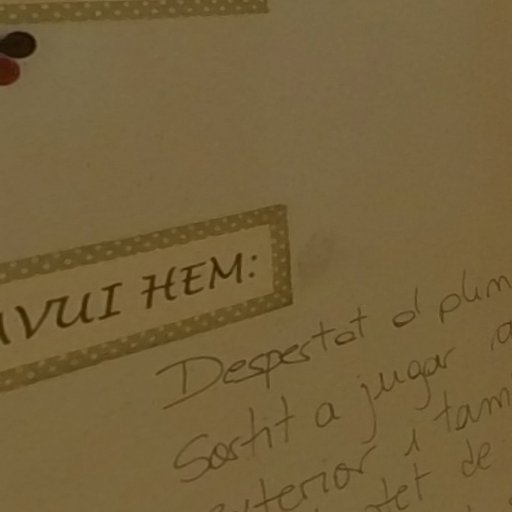 AVUI HEM:
Despertat
Sortit a jugar
exterior i tam
de